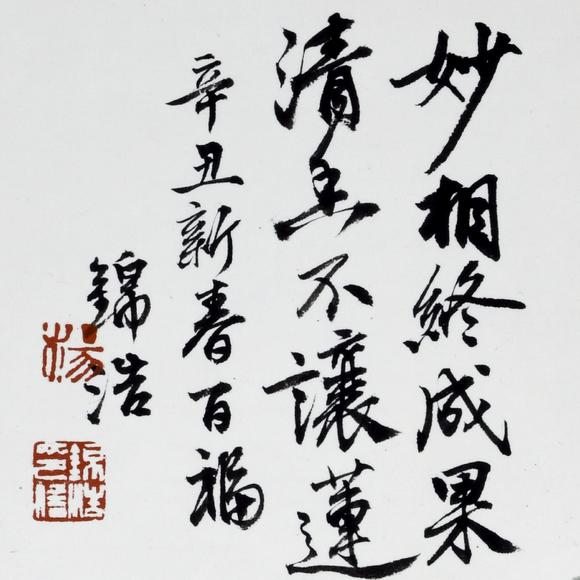 妙相終成果
清香不讓蓮
辛丑新春百福
錦浩
楊
錦浩